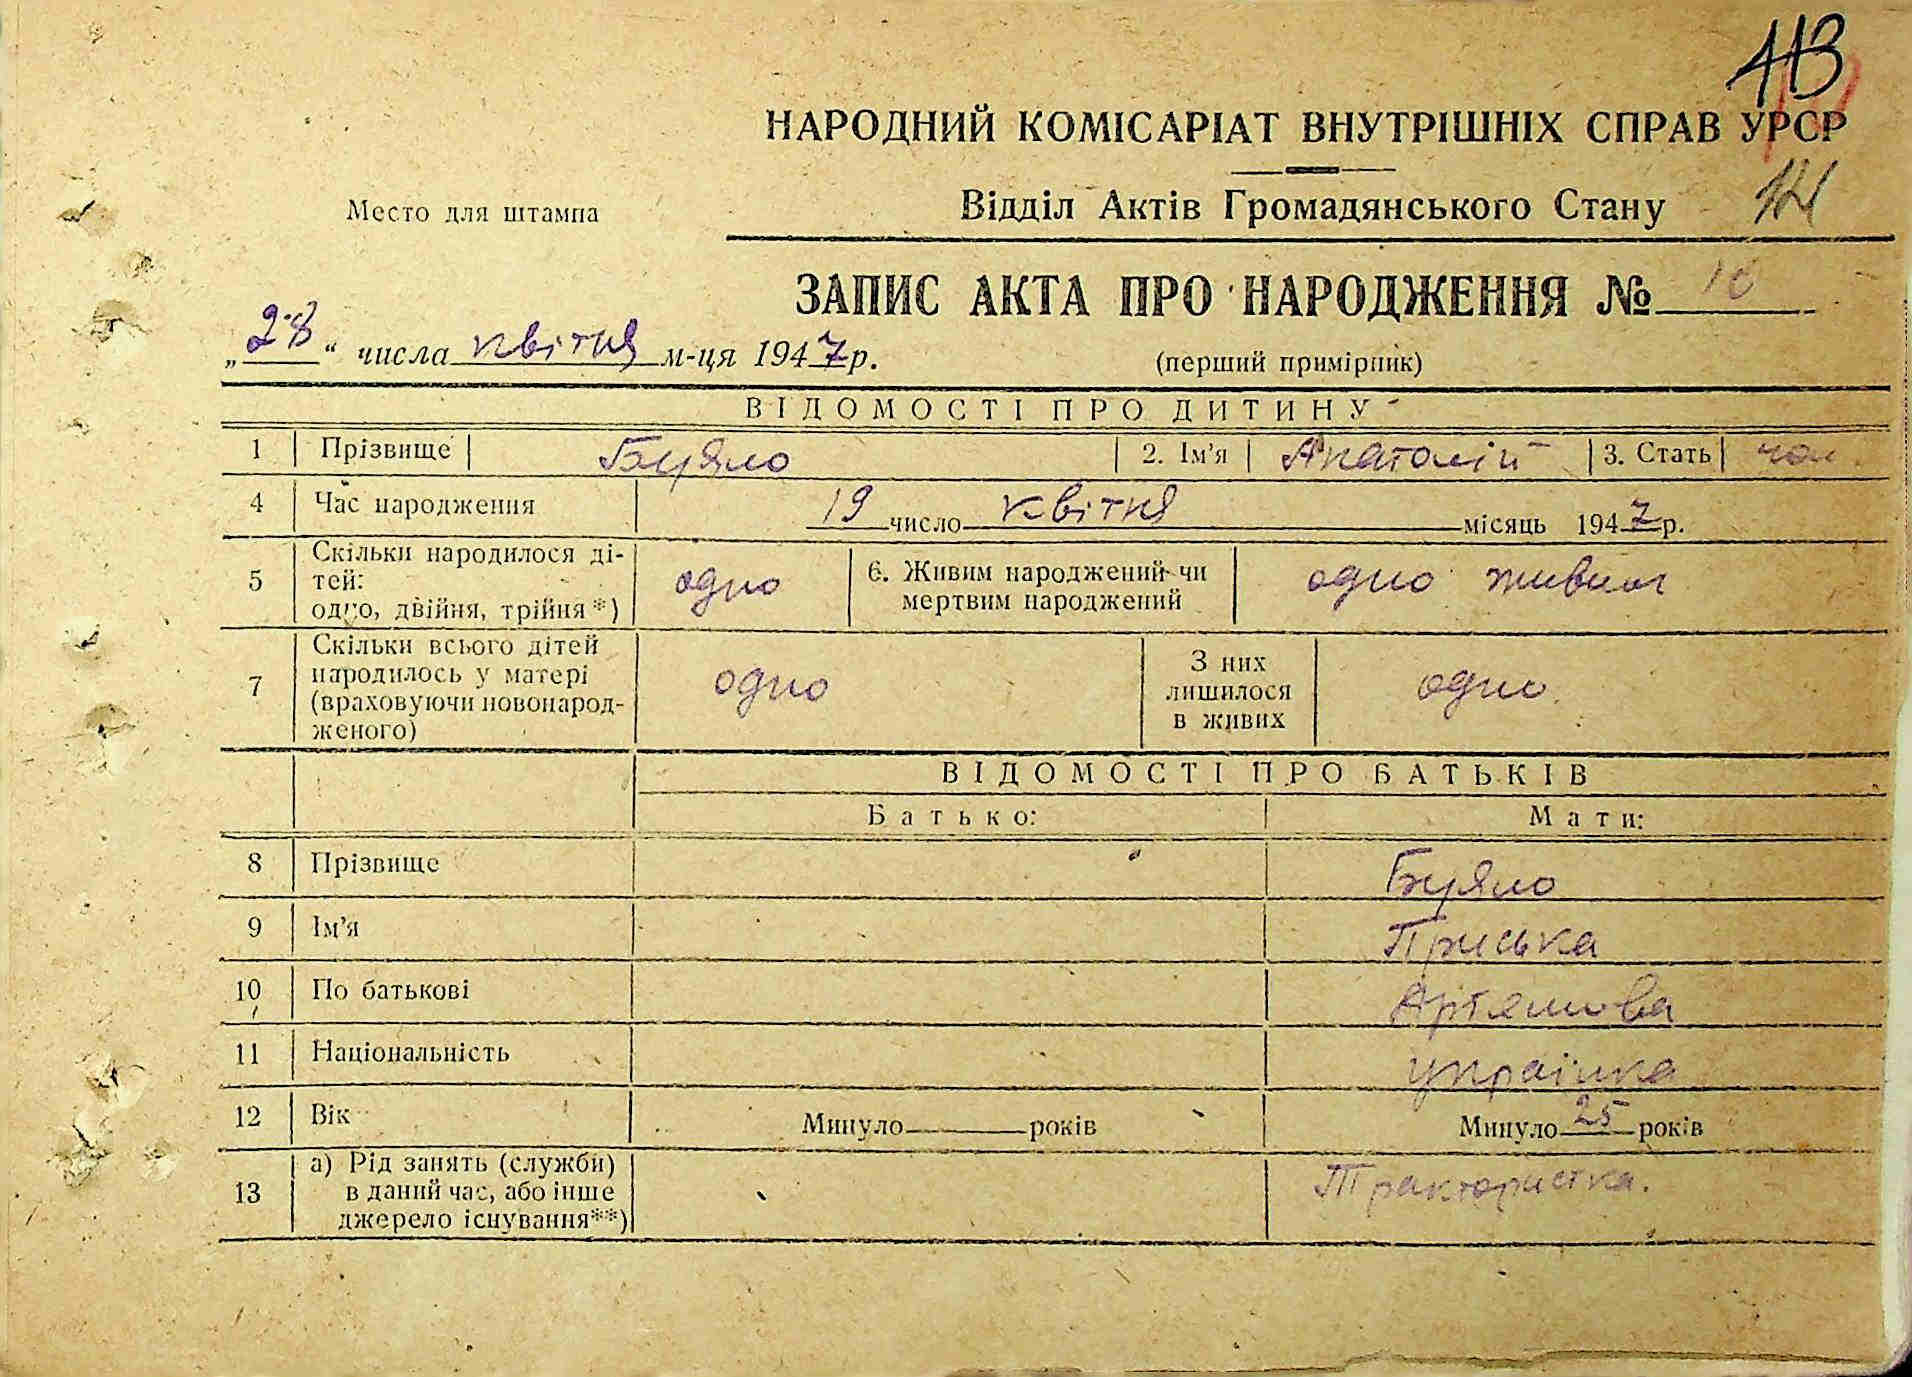 113
НАРОДНИЙ КОМІСАРІАТ ВНУТРІШНІХ СПРАВ УРСР
Место для штампа
Відділ Актів Громадянського Стану
ЗАПИС АКТА ПРО НАРОДЖЕННЯ №
„28“ числа квітня м-ця 1947 р.
(перший примірник)
ВІДОМОСТІ ПРО ДИТИНУ
1 Прізвище Буяло 2. Ім’я Анатолій 3. Стать чол
4 Час народження 19 число квітня місяць 1947 р.
5 Скільки народилося ді-
тей:
одно, двійня, трійня*) одно
6. Живим народжений чи
мертвим народжений одно живим
7 Скільки всього дітей
народилось у матері
(враховуючи новонарод-
женого) одно
З них
лишилося
в живих одно
ВІДОМОСТІ ПРО БАТЬКІВ
Батько: Мати:
8 Прізвище Буяло
9 Ім’я Приська
10 По батькові Артемова
11 Національність українка
12 Вік Минуло років Минуло 25 років
13 а) Рід занять (служби)
в даний час, або інше
джерело існування**) Трактористка.